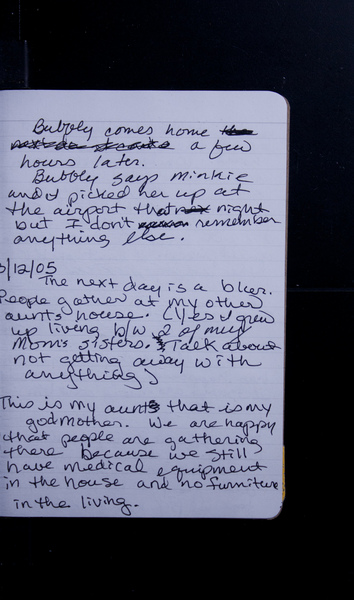 Bubbly comes home the
next da a few
hours later.
Bubbly says minkie
and I picked her up at
the airport that night
but I don't remember
anything else.
3/12/05
The next day is a blur.
People gather at my other
aunts house. (Yes I grew
up living b/w 2 of my
Mom's sisters. Talk about
not getting away with
anything)
This is my aunt that is my
godmother. We are happy
that people are gathering
there because we still
have medical equipment
in the house and no furniture
in the living.